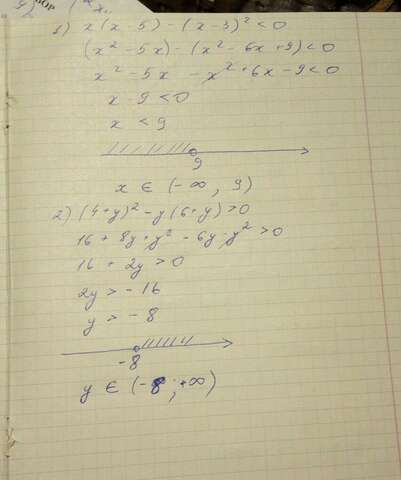 1) x(x-5)-(x-3)²<0
(x²-5x)-(x²-6x+9)<0
x²-5x-x²+6x-9<0
x-9<0
x<9
9
x ∈ (-∞, 9)
2) (4+y)²-y(6+y)>0
16+8y+y²-6y-y²>0
16+2y>0
2y>-16
y>-8
-8
y ∈ (-8; +∞)